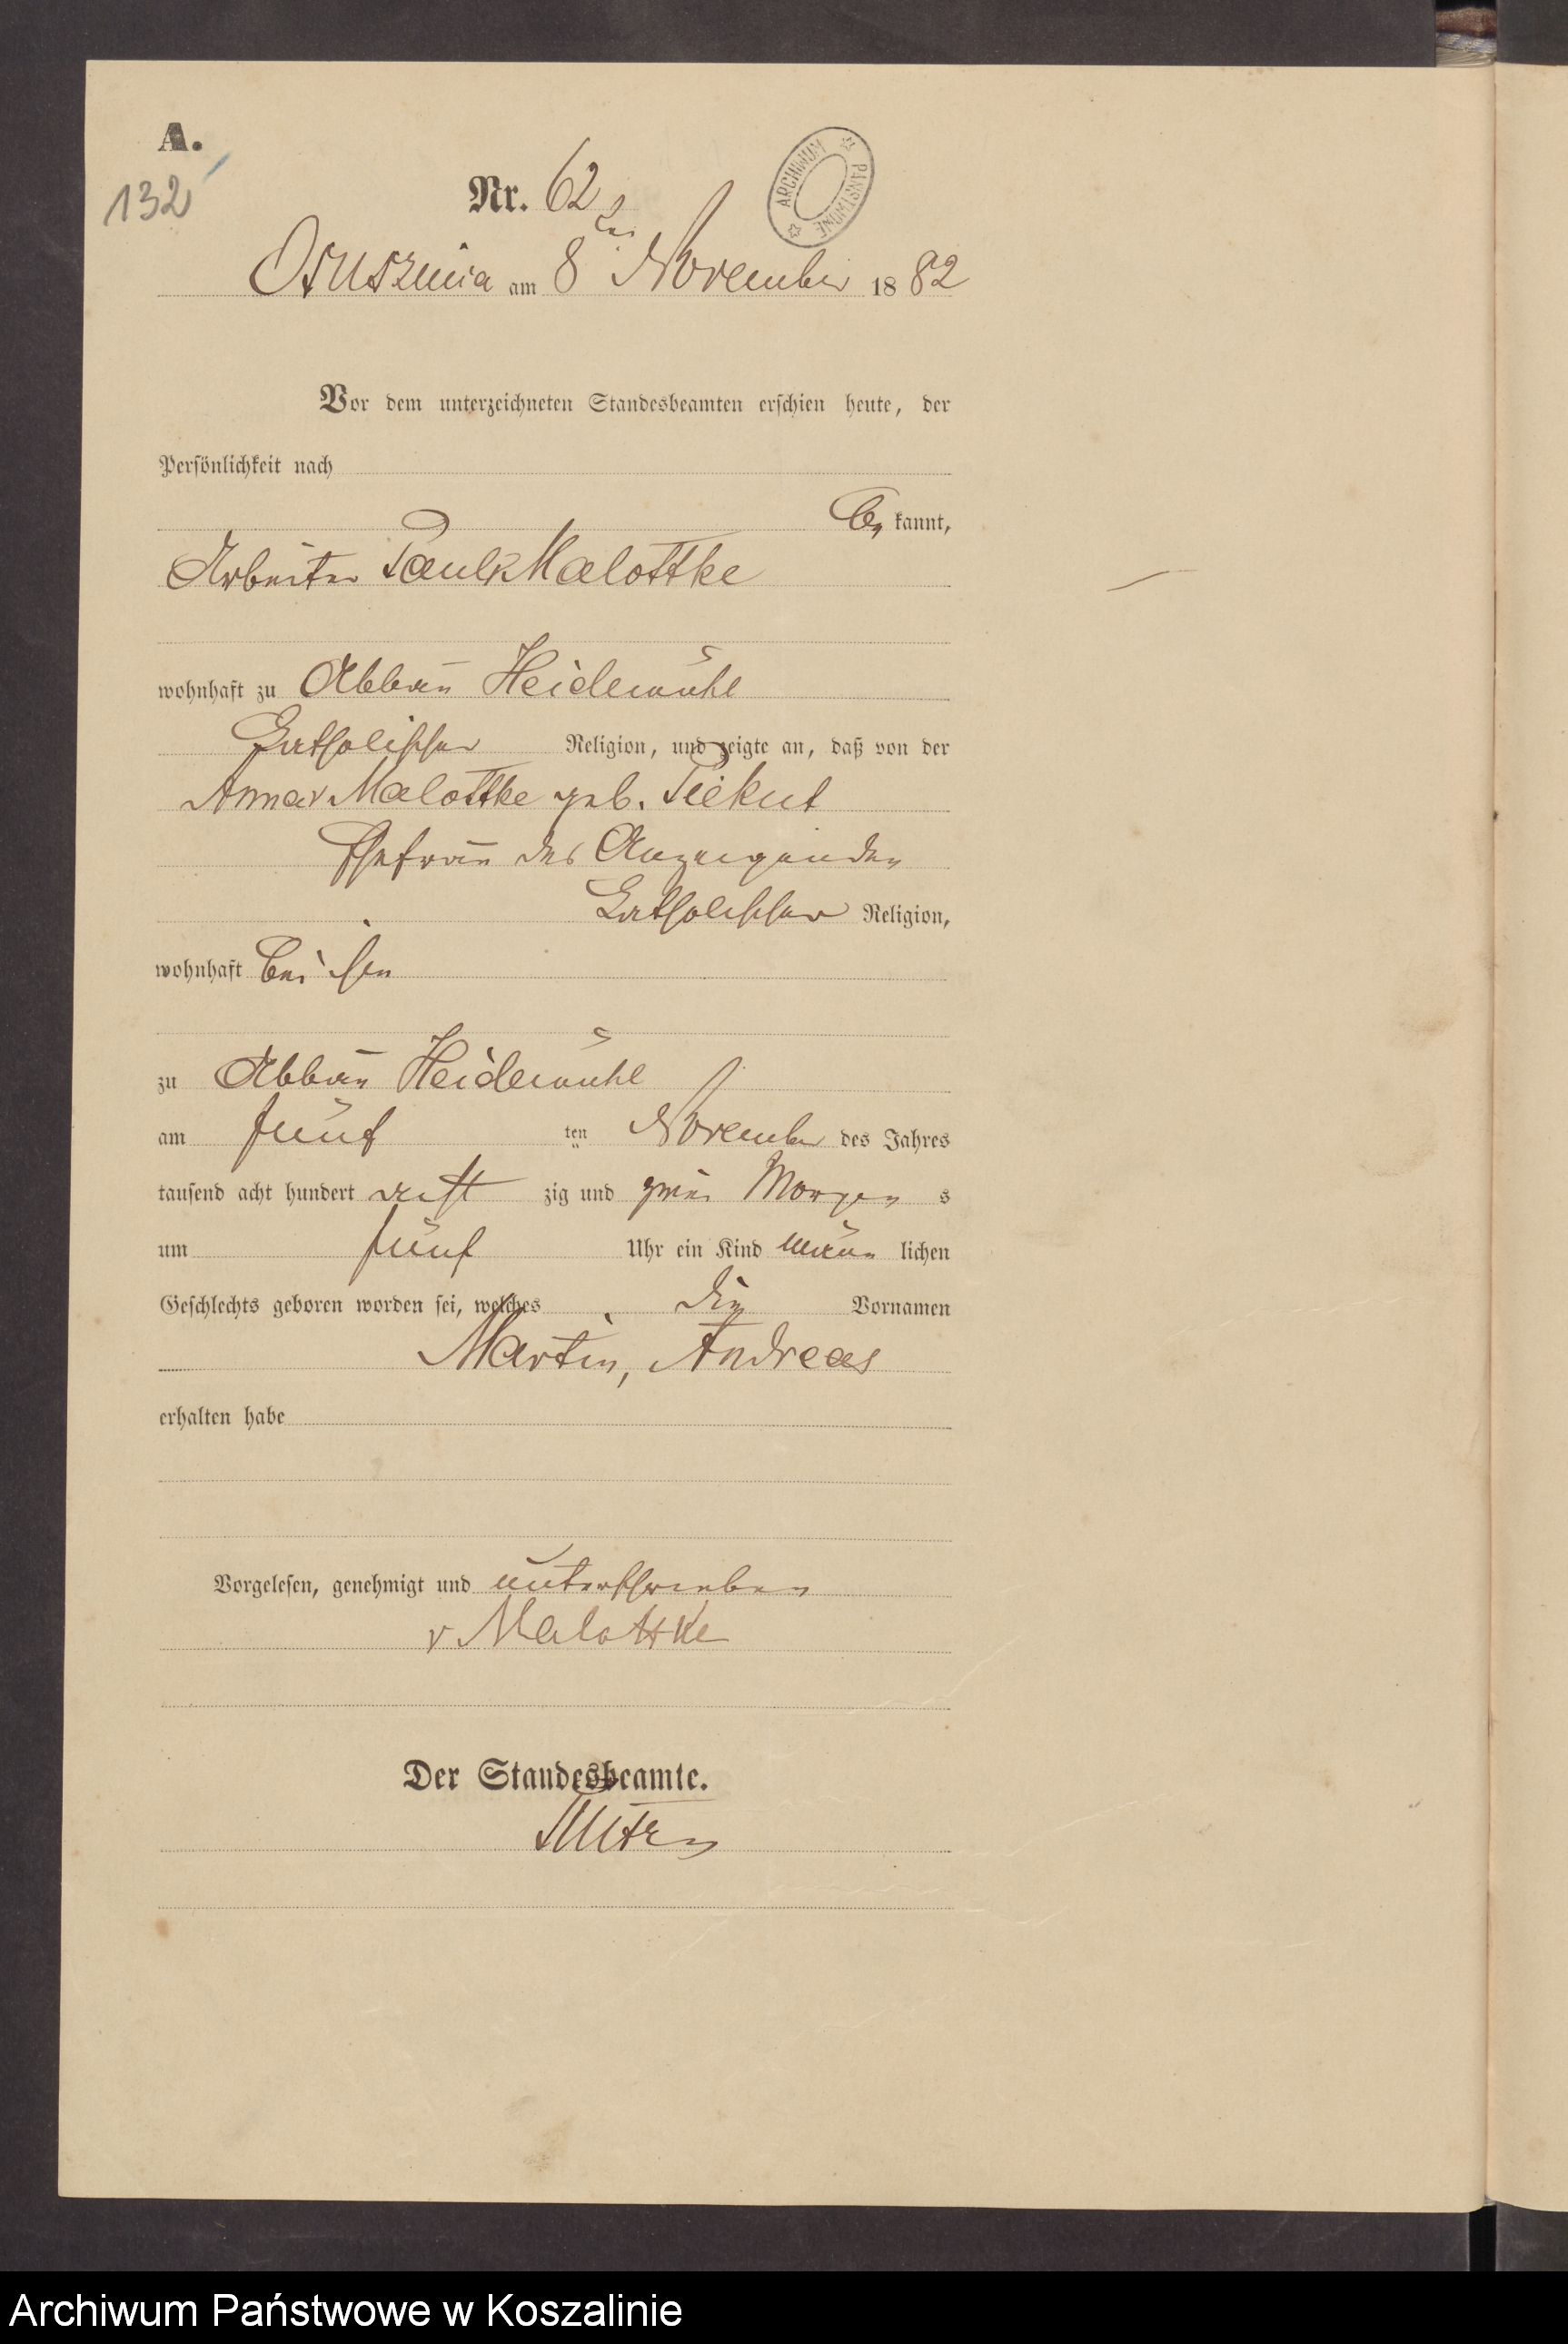 A.
132
Nr. 62
Osuszniza am 8ten November 1882
Vor dem unterzeichneten Standesbeamten erschien heute, der
Persönlichkeit nach
be kannt,
Arbeiter Paul v Malottke
wohnhaft zu Abbau Heidemühl
katholischer Religion, und zeigte an, daß von der
Anna v Malottke geb. Piekut
Ehefrau des Anzeigenden
katholischer Religion,
wohnhaft bei ihm
zu Abbau Heidemühl
am fünf ten November des Jahres
tausend acht hundert acht zig und zwei Morgen s
um fünf Uhr ein Kind männ lichen
Geschlechts geboren worden sei, welches die Vornamen
Martin, Andreas
erhalten habe
Vorgelesen, genehmigt und unterschrieben
v Malottke
Der Standesbeamte.
ARCHIWUM PAŃSTWOWE
Archiwum Państwowe w Koszalinie